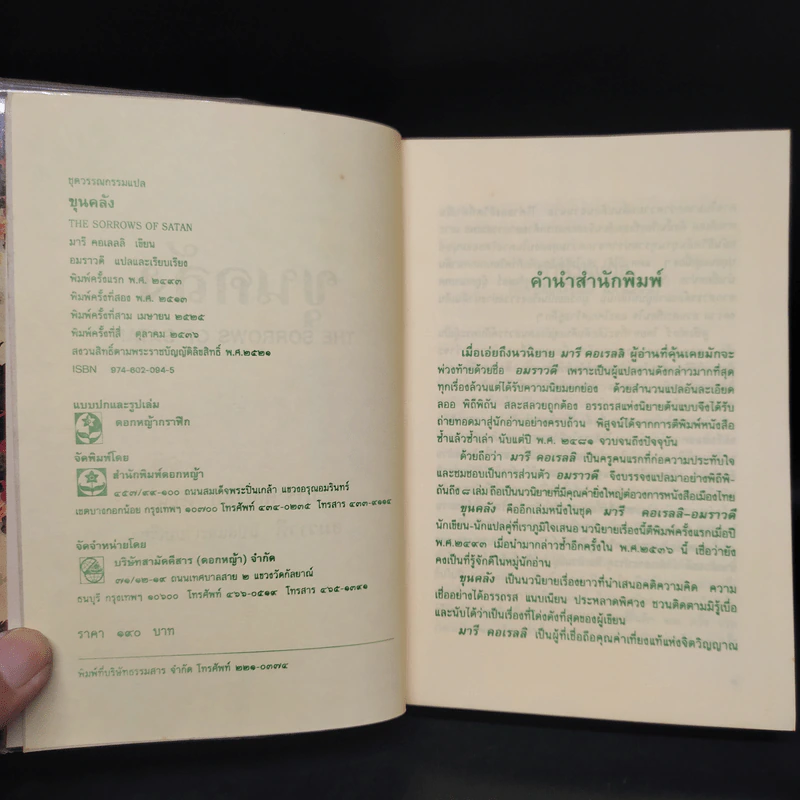 ชุดวรรณกรรมแปล
ขุนคลัง
THE SORROWS OF SATAN
มารี คอเลลลิ เขียน
อมราวดี แปลและเรียบเรียง
พิมพ์ครั้งแรก พ.ศ. ๒๔๙๓
พิมพ์ครั้งที่สอง พ.ศ. ๒๕๑๓
พิมพ์ครั้งที่สาม เมษายน ๒๕๒๕
พิมพ์ครั้งที่สี่ ตุลาคม ๒๕๓๖
สงวนสิทธิ์ตามพระราชบัญญัติลิขสิทธิ์ พ.ศ.๒๕๒๑
ISBN 974-602-094-5
แบบปกและรูปเล่ม
ดอกหญ้ากราฟิก
จัดพิมพ์โดย
สำนักพิมพ์ดอกหญ้า
๔๕๗/๙๙-๑๐๐ ถนนสมเด็จพระปิ่นเกล้า แขวงอรุณอมรินทร์
เขตบางกอกน้อย กรุงเทพฯ ๑๐๗๐๐ โทรศัพท์ ๔๓๔-๐๒๓๕ โทรสาร ๔๓๓-๙๑๑๔
จัดจำหน่ายโดย
บริษัทสามัคคีสาร (ดอกหญ้า) จำกัด
๗๑/๑๒-๑๙ ถนนเทศบาลสาย ๒ แขวงวัดกัลยาณ์
ธนบุรี กรุงเทพฯ ๑๐๖๐๐ โทรศัพท์ ๔๖๖-๐๕๑๙ โทรสาร ๔๖๕-๑๓๙๑
ราคา ๑๙๐ บาท
พิมพ์ที่บริษัทธรรมสาร จำกัด โทรศัพท์ ๒๒๑-๐๓๗๔
คำนำสำนักพิมพ์
เมื่อเอ่ยถึงนวนิยาย มารี คอเรลลิ ผู้อ่านที่คุ้นเคยมักจะ
พ่วงท้ายด้วยชื่อ อมราวดี เพราะเป็นผู้แปลงานดังกล่าวมากที่สุด
ทุกเรื่องล้วนแต่ได้รับความนิยมยกย่อง ด้วยสำนวนแปลอันละเอียด
ลออ พิถีพิถัน สละสลวยถูกต้อง อรรถรสแห่งนิยายต้นแบบจึงได้รับ
ถ่ายทอดมาสู่นักอ่านอย่างครบถ้วน พิสูจน์ได้จากการตีพิมพ์หนังสือ
ซ้ำแล้วซ้ำเล่า นับแต่ปี พ.ศ. ๒๔๘๑ จวบจนถึงปัจจุบัน
ด้วยถือว่า มารี คอเรลลิ เป็นครูคนแรกที่ก่อความประทับใจ
และชมชอบเป็นการส่วนตัว อมราวดี จึงบรรจงแปลมาอย่างพิถีพิ-
ถันถึง ๘ เล่ม ถือเป็นนวนิยายที่มีคุณค่ายิ่งใหญ่ต่อวงการหนังสือเมืองไทย
ขุนคลัง คืออีกเล่มหนึ่งในชุด มารี คอเรลลิ-อมราวดี
นักเขียน-นักแปลคู่ที่เราภูมิใจเสนอ นวนิยายเรื่องนี้ตีพิมพ์ครั้งแรกเมื่อปี
พ.ศ.๒๔๙๓ เมื่อนำมากล่าวซ้ำอีกครั้งใน พ.ศ.๒๕๓๖ นี้ เชื่อว่ายัง
คงเป็นที่รู้จักดีในหมู่นักอ่าน
ขุนคลัง เป็นนวนิยายเรื่องยาวที่นำเสนอคติความคิด ความ
เชื่ออย่างได้อรรถรส แนบเนียน ประหลาดพิศวง ชวนติดตามมิรู้เบื่อ
และนับได้ว่าเป็นเรื่องที่โด่งดังที่สุดของผู้เขียน
มารี คอเรลลิ เป็นผู้ที่เชื่อถือคุณค่าเที่ยงแท้แห่งจิตวิญญาณ